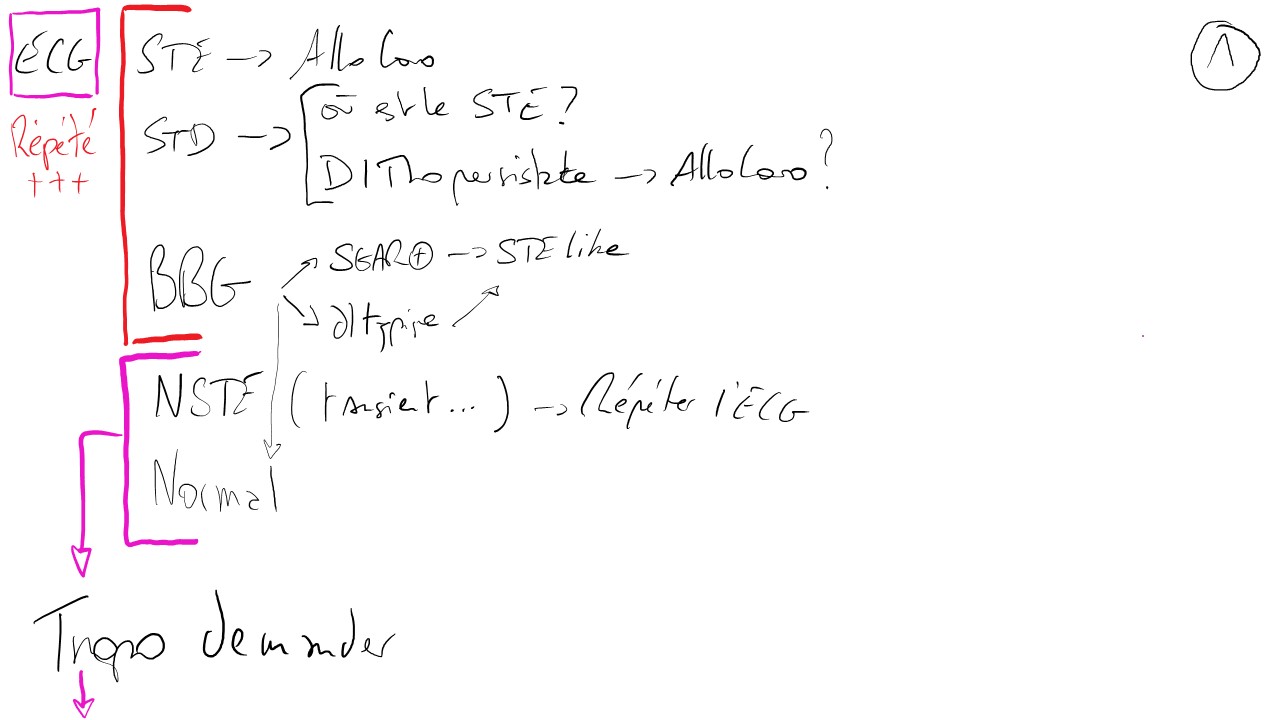 ECG
Répété
+++
STE → Allo Coro
STD → où est le STE ?
DITho persistante → Allo Coro ?
BBG
SGAR⊕ → STE like
dltypique
NSTE (transient...) → Répéter l'ECG
Normal
Tropo demander
1